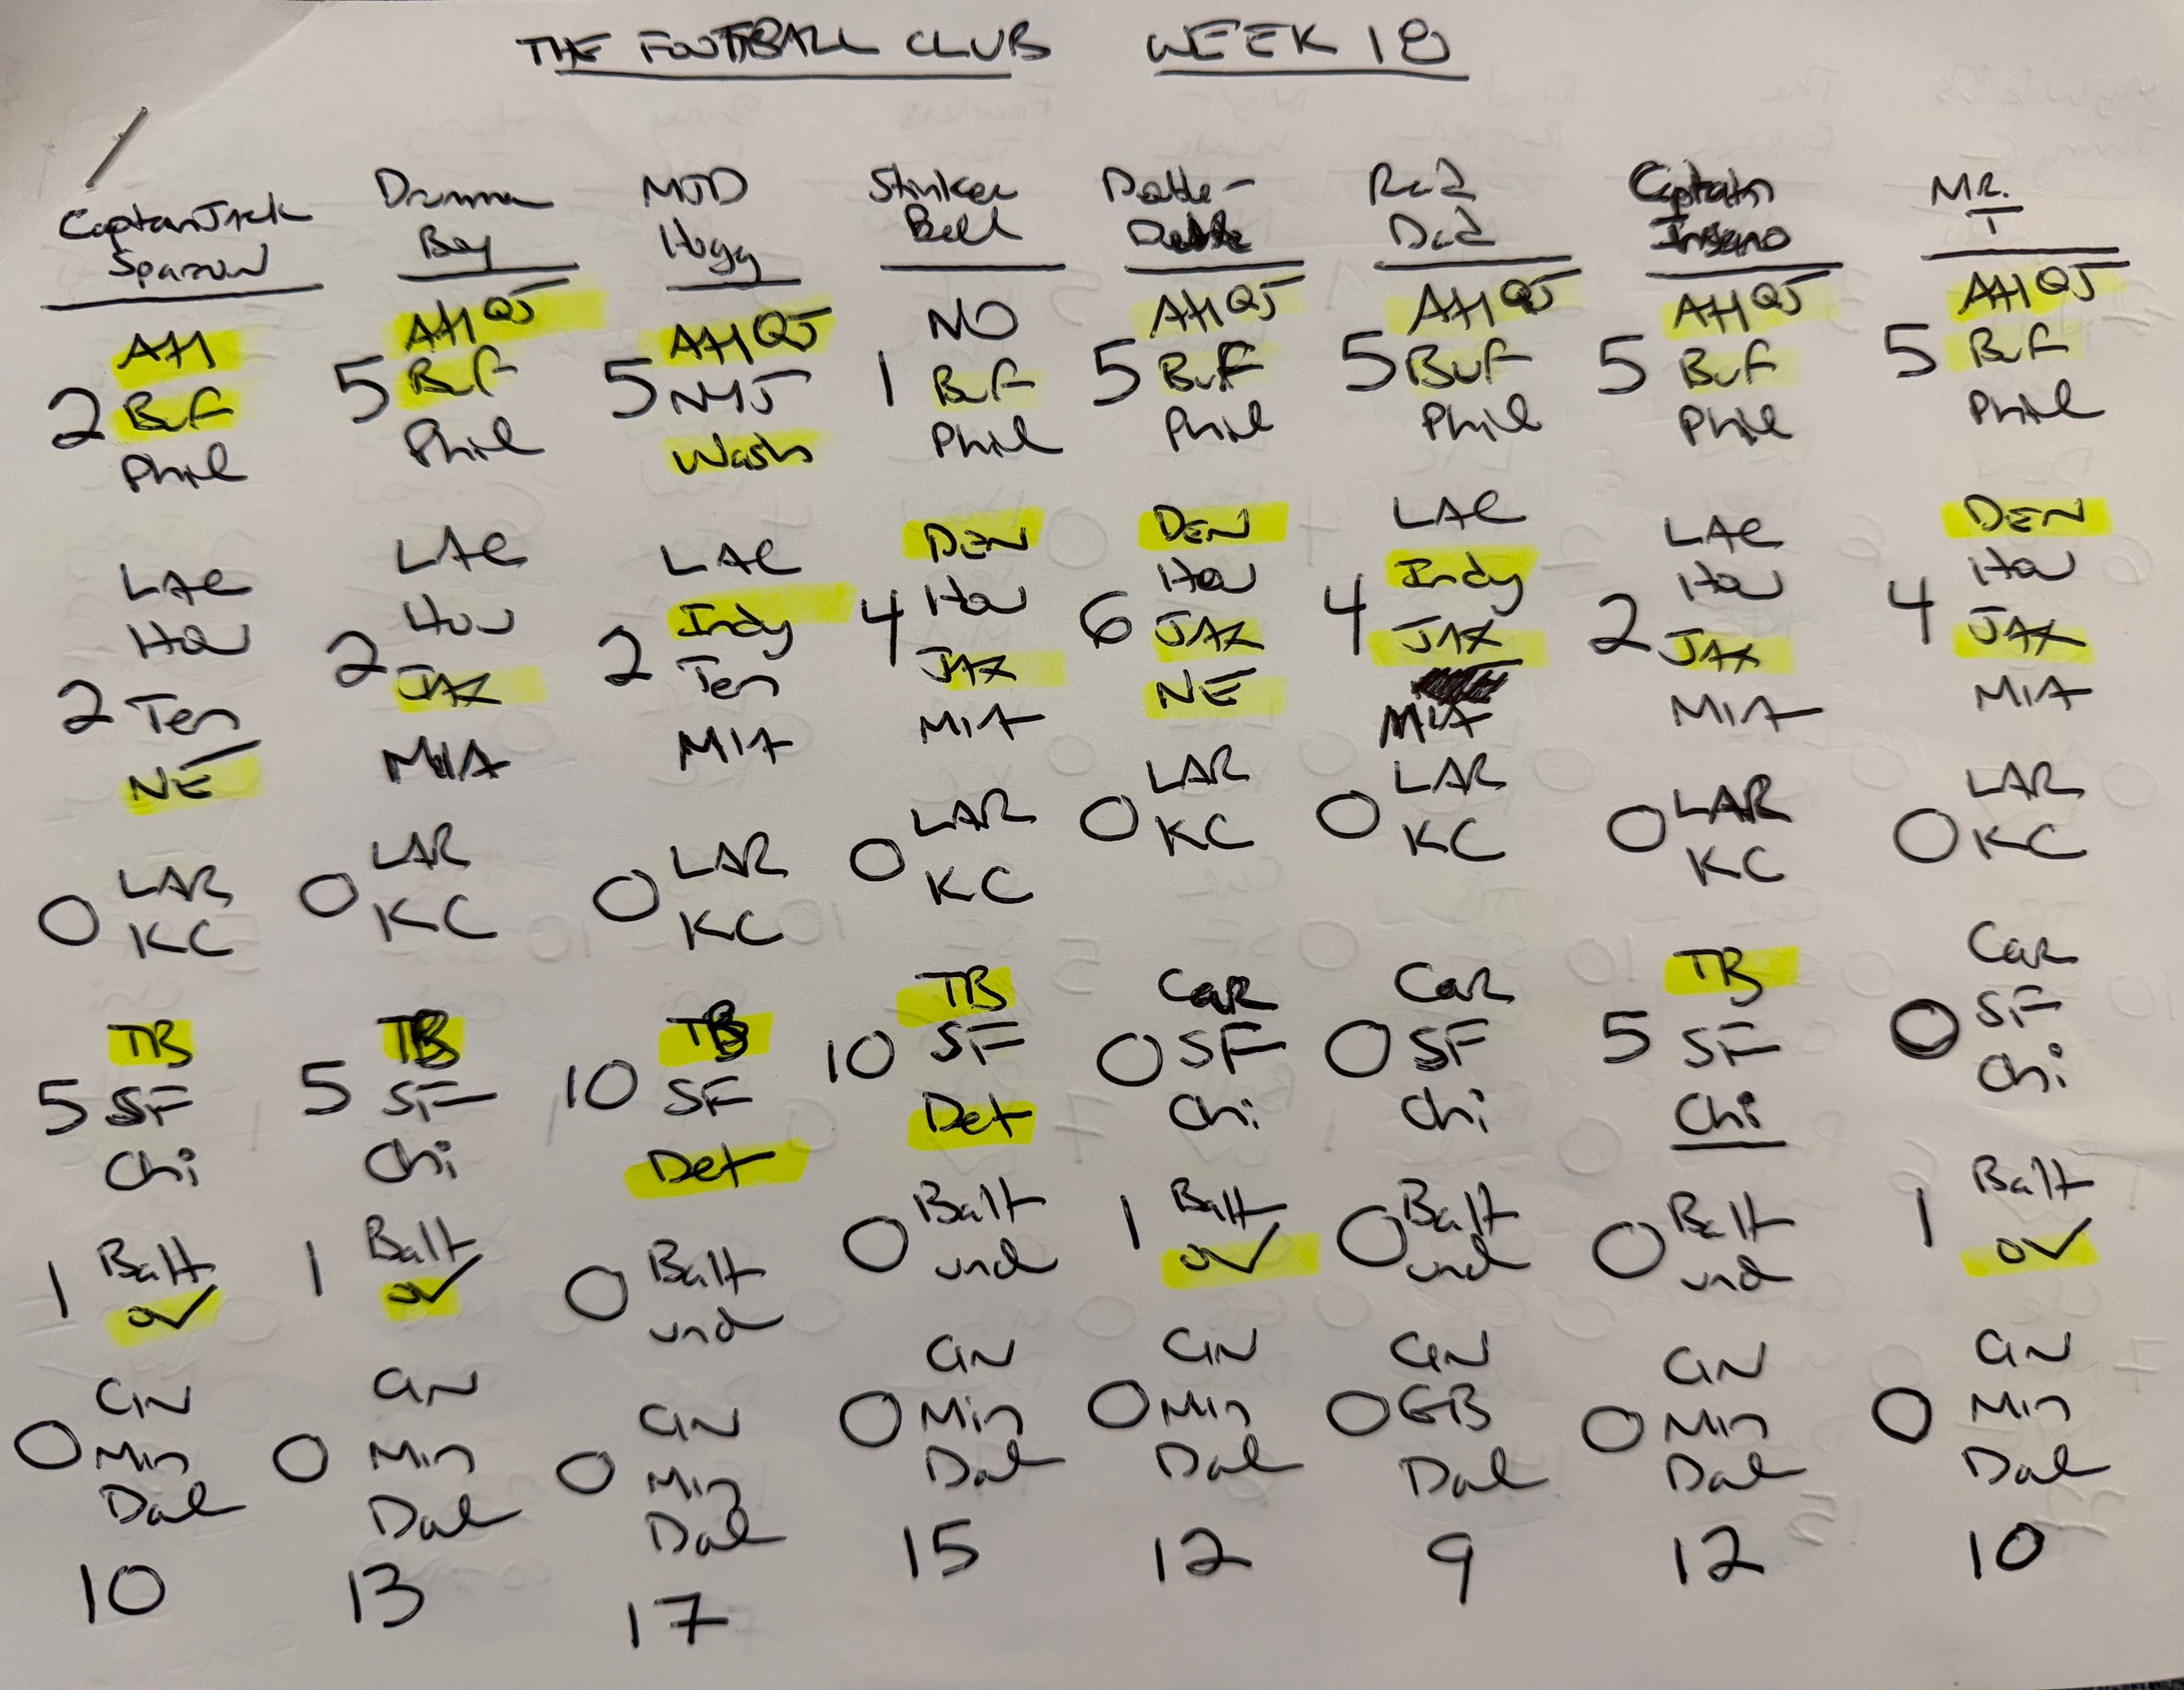 THE FOOTBALL CLUB WEEK 18
Captain Jack
Sparrow
AH
2 Buf
Phil
LAC
Hou
2 Ten
NE
LAR
0 KC
TB
5 SF
Chi
1 Balt
ov
CIN
0 Min
Dal
10
Drummer
Boy
AH QJ
5 Buf
Phil
LAC
Hou
2 JAX
MIA
LAR
0 KC
TB
5 SF
Chi
1 Balt
ov
CIN
0 Min
Dal
13
MJD
Hogg
AH QJ
5 NYJ
Wash
LAC
Indy
2 Ten
MIA
LAR
0 KC
TB
10 SF
Det
0 Balt
und
CIN
0 Min
Dal
17
Stinker
Bell
NO
1 Buf
Phil
DEN
4 Hou
JAX
MIA
LAR
0 KC
TB
10 SF
Det
0 Balt
und
CIN
0 Min
Dal
15
AH QJ
5 Buf
Phil
DEN
Hou
6 JAX
NE
LAR
0 KC
Car
0 SF
Chi
1 Balt
ov
CIN
0 Min
Dal
12
Rad
Dad
AH QJ
5 Buf
Phil
LAC
Indy
4 JAX
MIA
LAR
0 KC
Car
0 SF
Chi
0 Balt
und
CIN
0 GB
Dal
9
Captain
Insano
AH QJ
5 Buf
Phil
LAC
Hou
2 JAX
MIA
0 LAR
KC
TB
5 SF
Chi
0 Balt
und
CIN
0 Min
Dal
12
MR.
T
AH QJ
5 Buf
Phil
DEN
Hou
4 JAX
MIA
LAR
0 KC
Car
0 SF
Chi
1 Balt
ov
CIN
0 Min
Dal
10